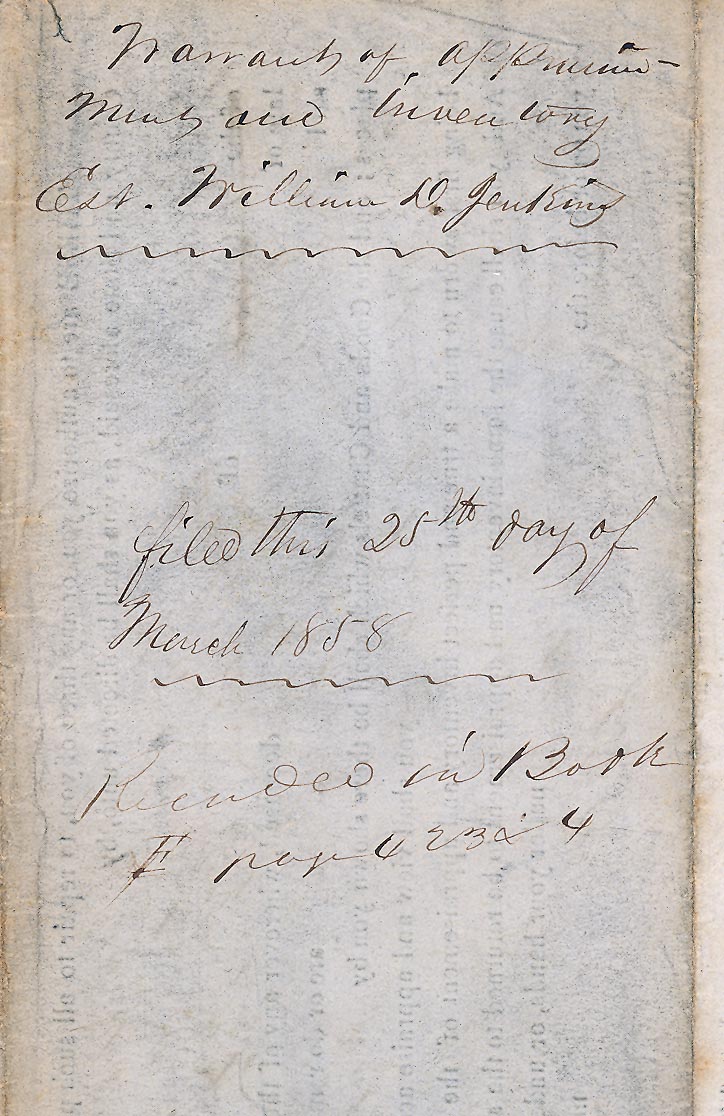 Warrant of appraise-
ment and inventory
Est. William D. Jenkins
filed this 25th day of
March 1858
Recorded in Book
F page 423 & 4